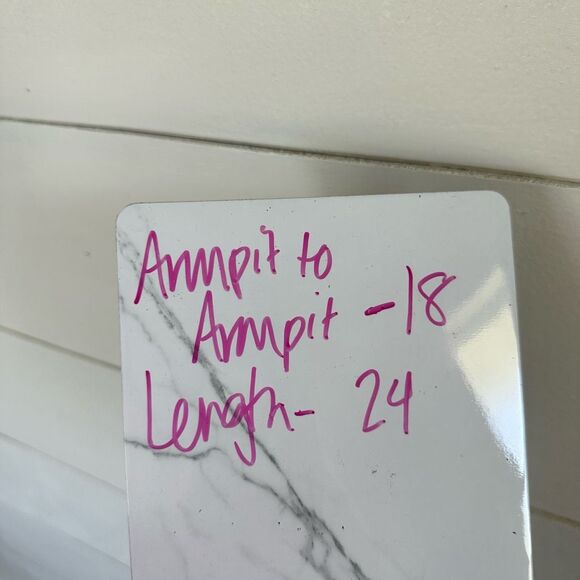 Armpit to
Armpit - 18
Length - 24